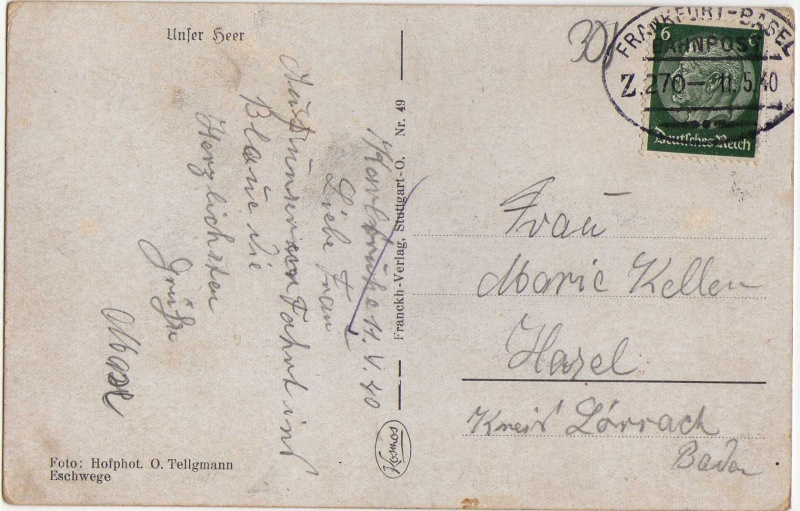 Unser Heer
301
FRANKFURT-BASEL
BAHNPOST
Z.270 11.5.40
6 6
Deutsches Reich
Karlsruhe 11.V.40
Liebe Frau
Auf unserer Fahrt ins
Blaue die
Herzlichsten
Grüße
Frau
Marie Keller
Hasel
Kreis Lörrach
Baden
Franckh-Verlag, Stuttgart-O. Nr. 49
Kosmos
Foto: Hofphot. O. Tellgmann
Eschwege